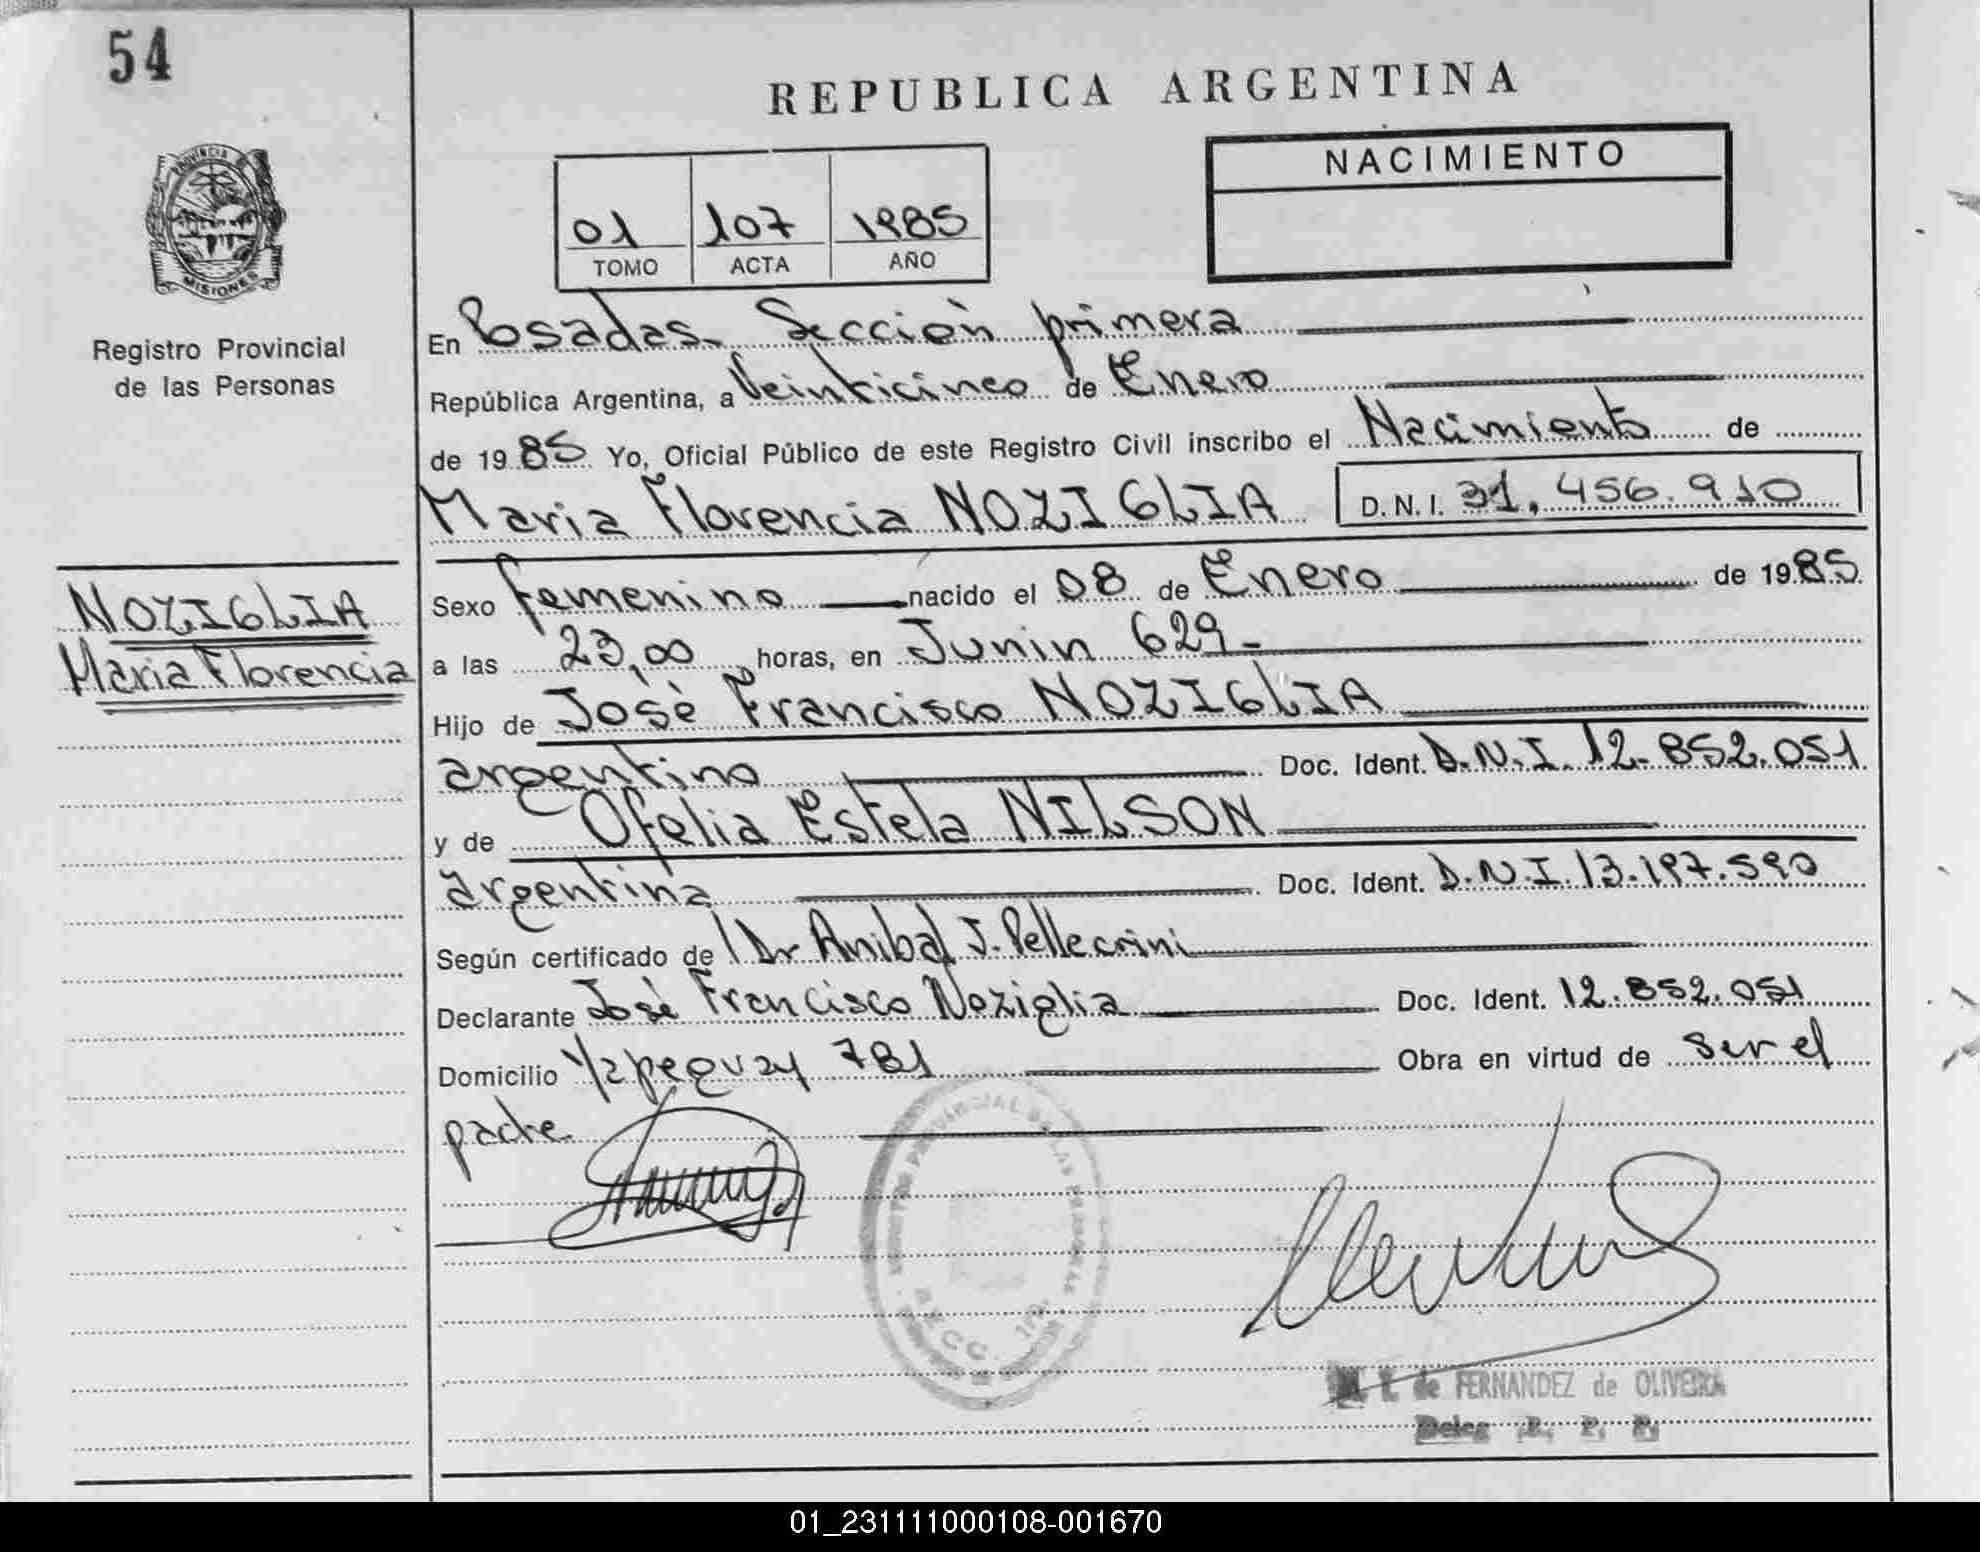 54
REPUBLICA ARGENTINA
NACIMIENTO
01 107 1985
TOMO ACTA AÑO
PROVINCIA DE
MISIONES
Registro Provincial
de las Personas
En Posadas. Sección primera
República Argentina, a Veinticinco de Enero
de 1985 Yo, Oficial Público de este Registro Civil inscribo el Nacimiento de
Maria Florencia NOZIGLIA D.N.I. 31.456.910
NOZIGLIA
Maria Florencia
Sexo femenino nacido el 08 de Enero de 1985
a las 23,00 horas, en Junin 629-
Hijo de José Francisco NOZIGLIA
argentino Doc. Ident. D.N.I. 12.852.051
y de Ofelia Estela NILSON
argentina Doc. Ident. D.N.I. 13.197.590
Según certificado de Dr Anibal J. Pellecrini
Declarante José Francisco Noziglia Doc. Ident. 12.852.051
Domicilio Yapeguay 781 Obra en virtud de ser el
padre
de FERNANDEZ de OLIVEIRA
Deleg. R. P. P.
01_231111000108-001670